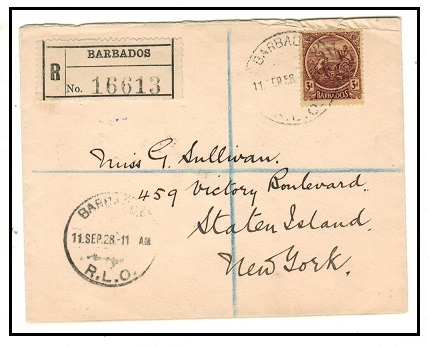 BARBADOS
R
No. 16613
BARBADOS
3d 3d
BARBADOS
R.L.O.
Miss G. Sullivan.
459 Victory Boulevard.
Staten Island.
New York.
BARBADOS
11.SEP.28-11 AM
R.L.O.